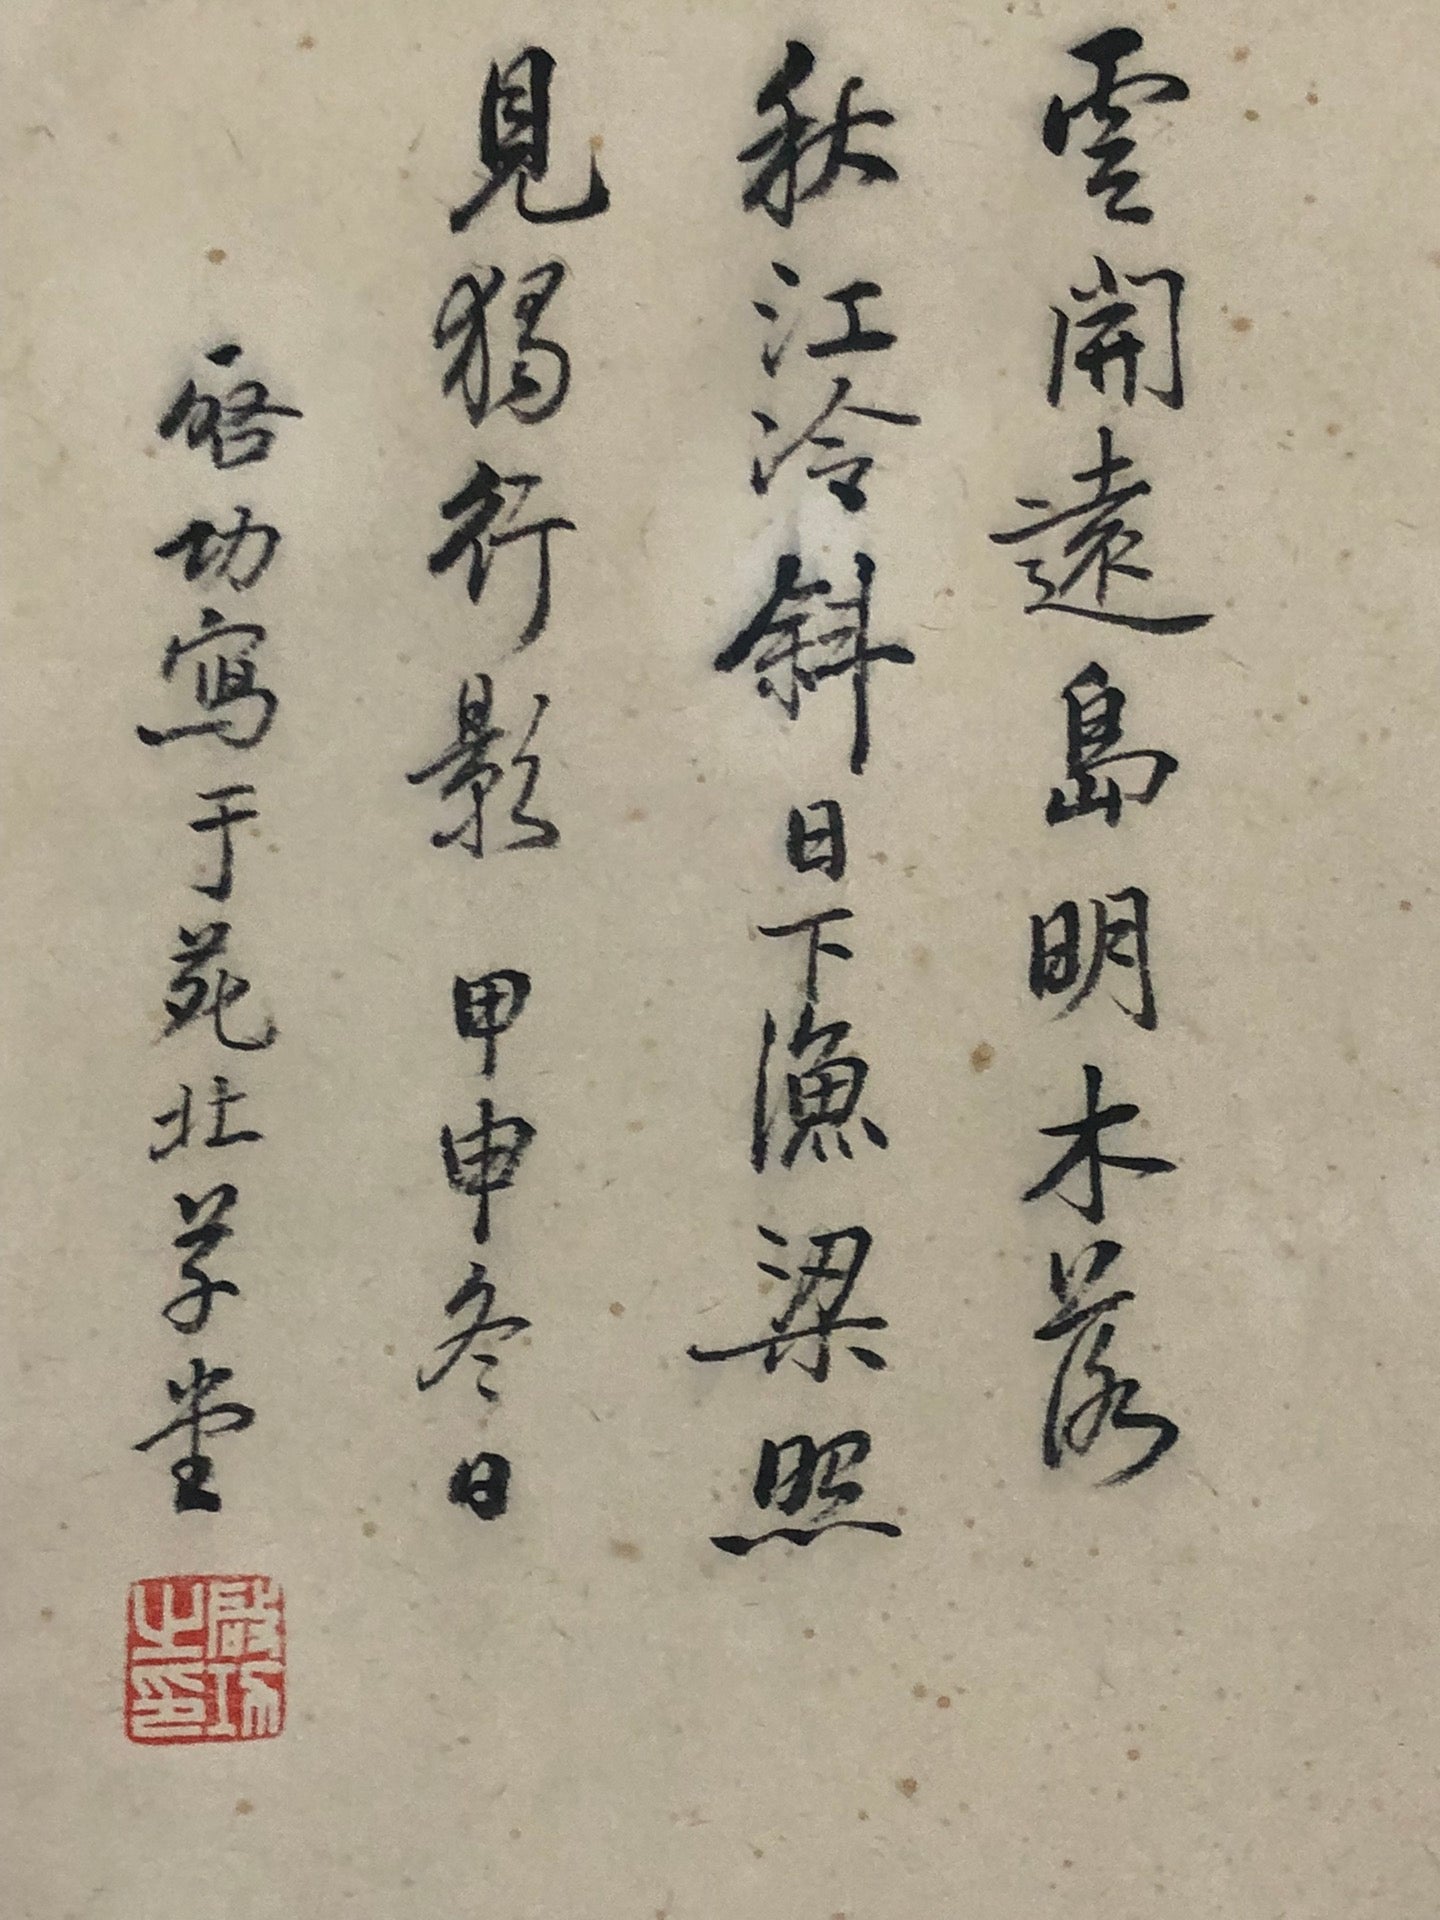 雲開遠島明木落
秋江冷斜日下漁梁照
見獨行影 甲申冬日
啓功寫于苑北草堂
啟功之印